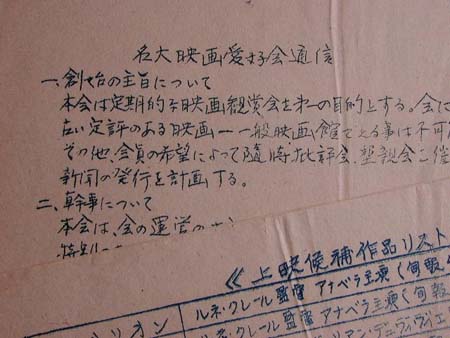 名大映画愛好会通信
一、創始の主旨について
本会は定期的な映画観賞会を第一の目的とする。会は
古い定評のある映画——一般映画館でみる事は不可
その他、会員の希望によって随時批評会、懇親会を催
新聞の発行を計画する。
二、幹事について
本会は、会の運営の
《上映候補作品リスト
リオン
ルネ・クレール監督 アナベラ主演(旬報
ルネ・クレール監督 アナベラ主演(旬報
リアン・デュヴィヴィエ